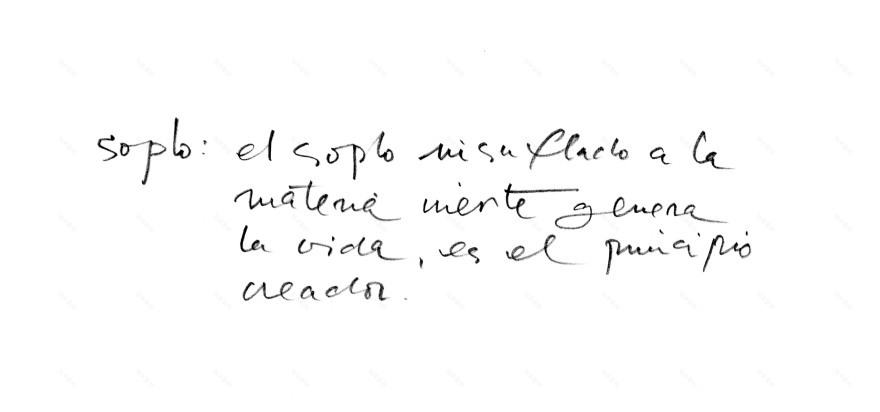 soplo: el soplo insuflado a la
materia inerte genera
la vida, es el principio
creador.